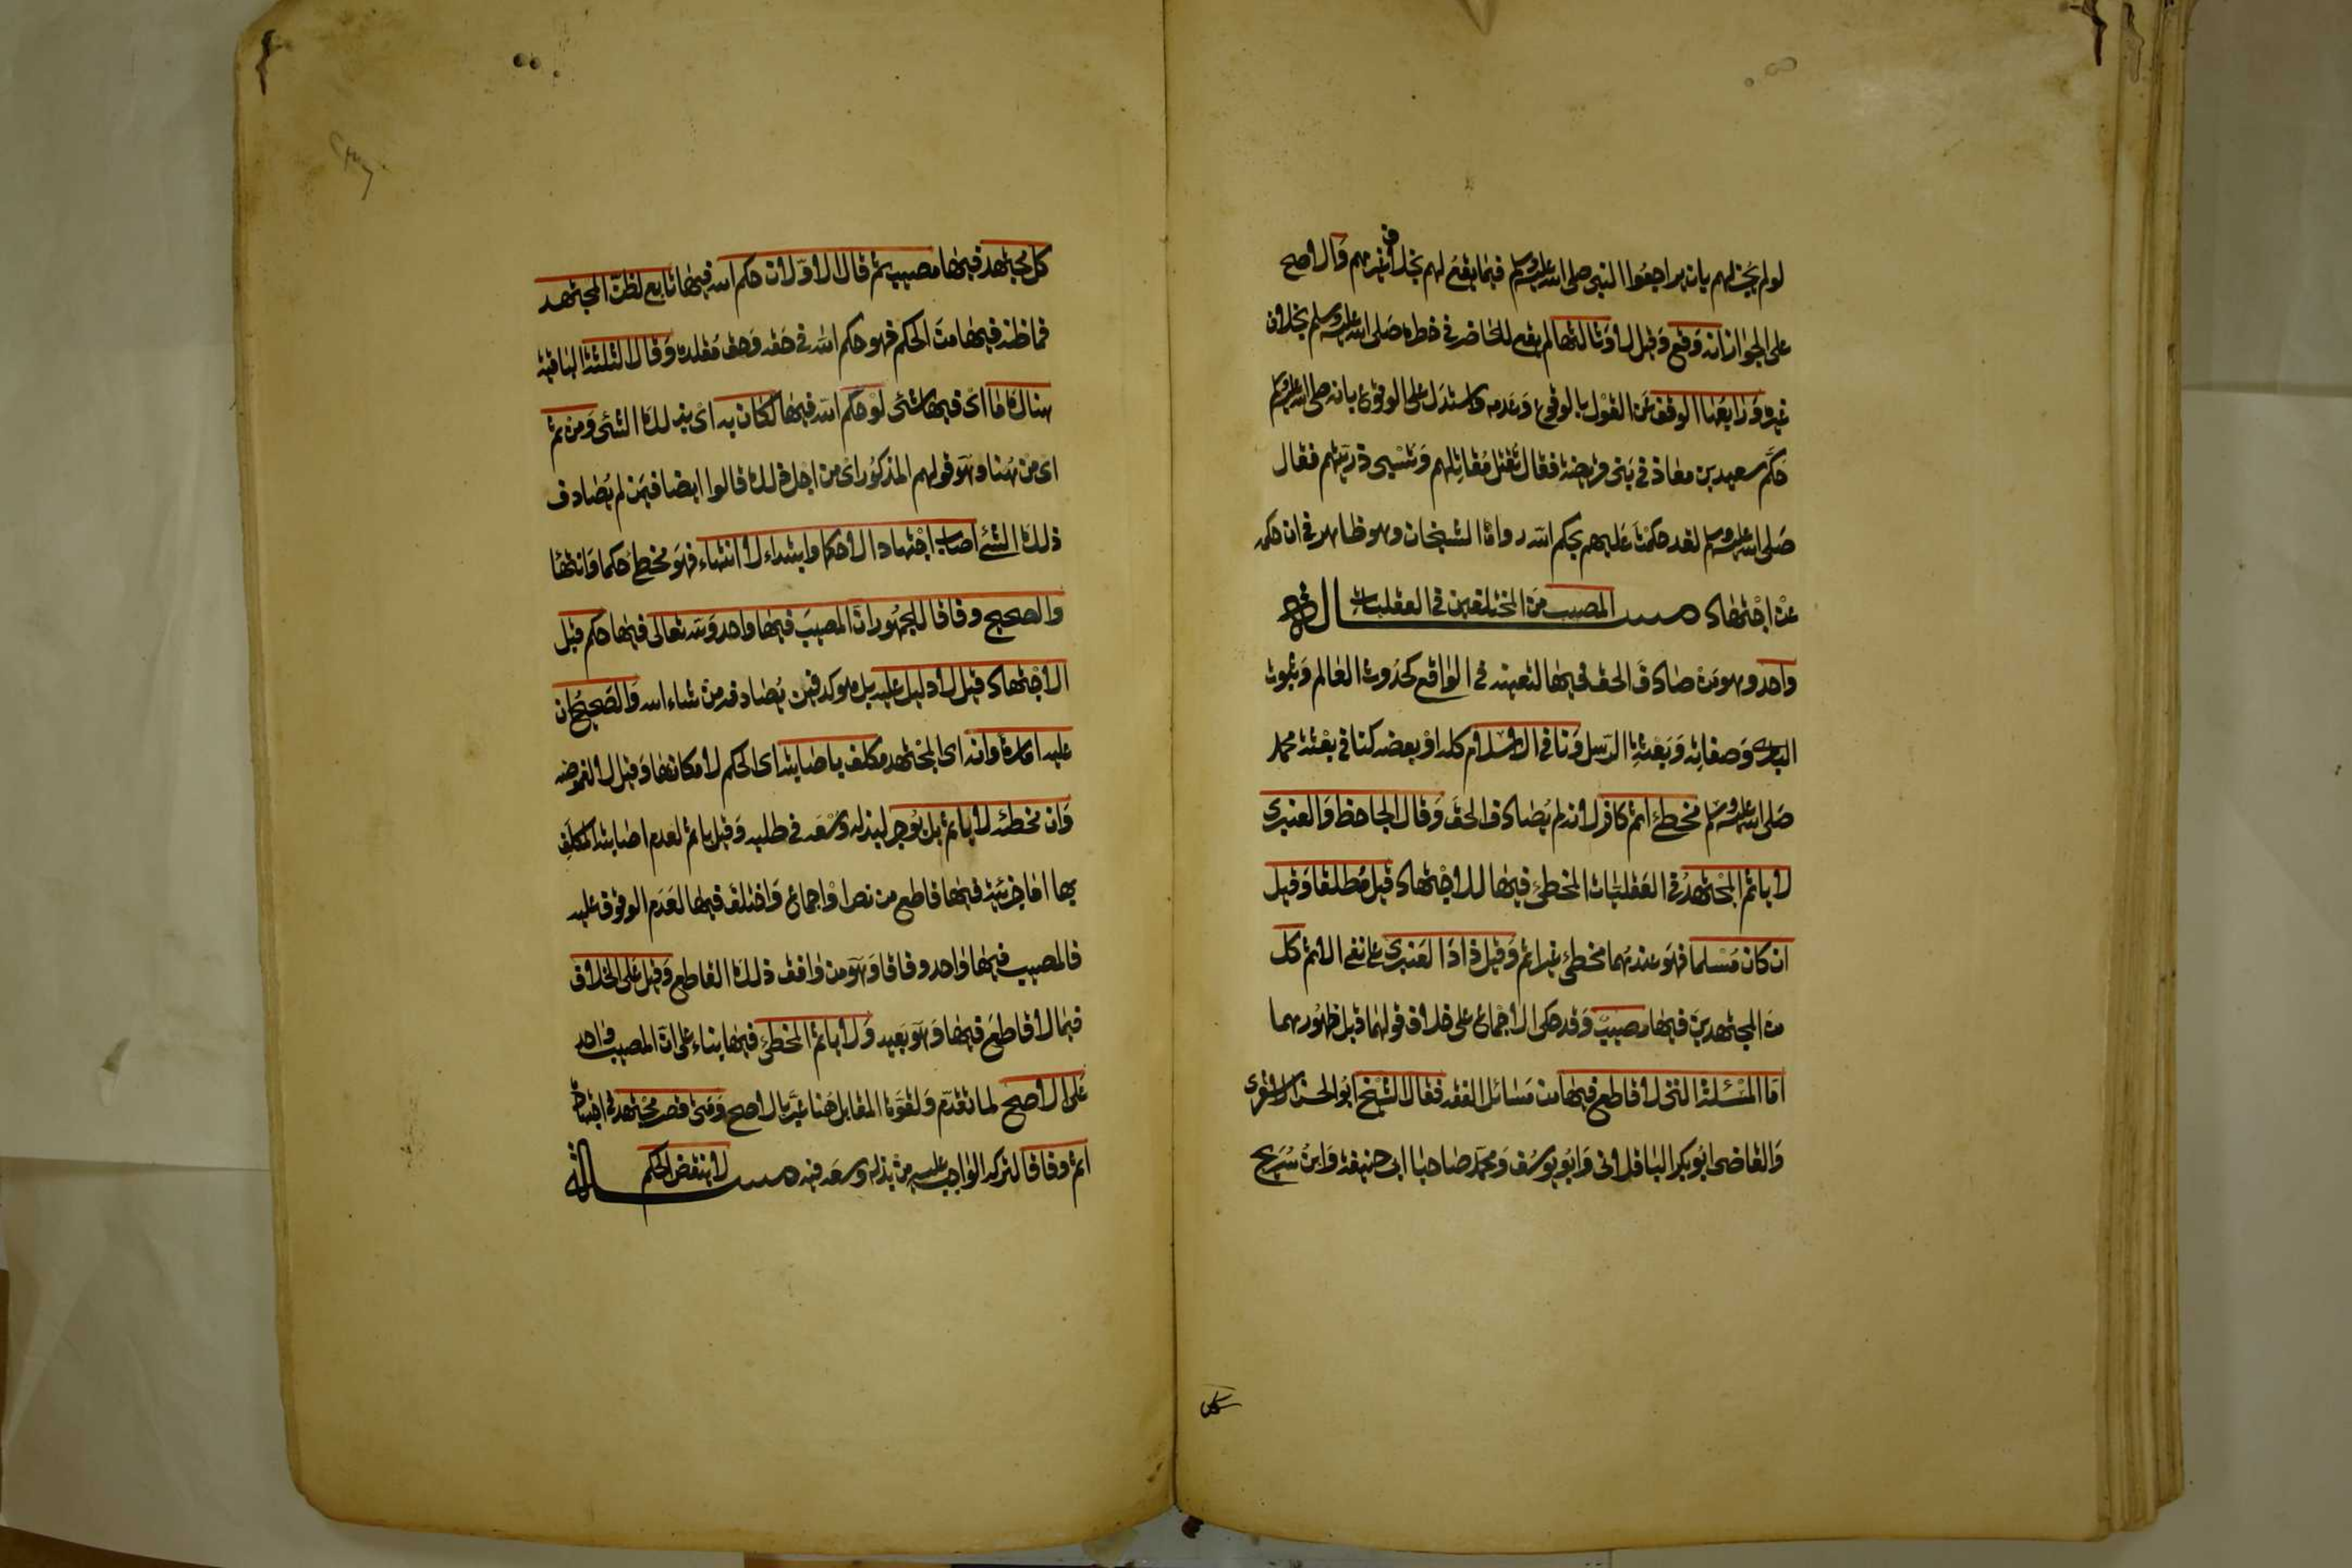 لو لم يجز لهم بان يراجعوا النبى صلى الله عليه وسلم فيما يقع لهم بخلاف غيرهم والاصح
على الجواز انه وقع وقيل لا وثالثها لم يقع للحاضر فى قطره صلى الله عليه وسلم بخلاف
غيره ورابعها الوقف عن القول بالوقوع وعدمه واستدل على الوقوع بانه صلى الله عليه وسلم
حكم سعيد بن معاذ فى بنى قريضة فقال تقتل مقاتلهم وتسبى ذريتهم فقال
صلى الله عليه وسلم لقد حكمت عليهم بحكم الله رواه الشيخان وهو ظاهر فى ان حكمه
عن اجتهاد مسالة المصيب من المختلفين فى العقليات
واحد وهو من صادف الحق فيها لتعينه فى الواقع كحدوث العالم وثبوت
البارى وصفاته وبعثة الرسل ونافى الاسلام كله او بعضه كنافى بعثة محمد
صلى الله عليه وسلم مخطئ اثم كافر لانه لم يصادف الحق وقال الجاحظ والعنبرى
لا ياثم المجتهد فى العقليات المخطئ فيها للاجتهاد قيل مطلقا وقيل
ان كان مسلما فهو عندهما مخطئ غير اثم وقيل زاد العنبرى على نفى الاثم كل
من المجتهدين فيها مصيب وقد حكى الاجماع على خلاف قولهما قبل ظهورهما
اما المسئلة التى لا قاطع فيها من مسائل الفقه فقال الشيخ ابو الحسن الاشعرى
والقاضى ابو بكر الباقلانى وابو يوسف ومحمد صاحبا ابى حنيفة وابن سريج
كل
كل مجتهد فيها مصيب ثم قال الاولان حكم الله فيها تابع لظن المجتهد
فما ظنه فيها من الحكم فهو حكم الله فى حقه وحق مقلده وقال الثلثة الباقية
هناك ما اى فيها شئ لو حكم الله فيها لكان به اى بذلك الشئ ومن ثم
اى من هنا وهو قولهم المذكور اى من اجل ذلك قالوا ايضا فيمن لم يصادف
ذلك الشئ اصاب اجتهادا لا حكما وابتداء لا انتهاء فهو مخطئ حكما وانتهاء
والصحيح وفاقا للجمهور ان المصيب فيها واحد ولله تعالى فيها حكم قبل
الاجتهاد قيل لا دليل عليه بل هو كدفين يصادفه من شاء الله والصحيح ان
عليه امارة وانه اى المجتهد مكلف باصابته اى الحكم لامكانها وقيل لا لغموضه
وان مخطئه لا ياثم بل يؤجر لبذله وسعه فى طلبه وقيل ياثم لعدم اصابته المكلف
بها اما جزئية فيها قاطع من نص او اجماع واختلف فيها لعدم الوقوف عليه
فالمصيب فيها واحد وفاقا وهو من وافق ذلك القاطع وقيل على الخلاف
فيما لا قاطع فيها وهو بعيد ولا ياثم المخطئ فيها بناء على ان المصيب واحد
على الاصح لما تقدم ولقوة المقابل هنا عبر بالاصح ومتى قصر مجتهد فى اجتهاد
اثم وفاقا لتركه الواجب عليه من بذله وسعه فيه مسالة لا ينقض الحكم